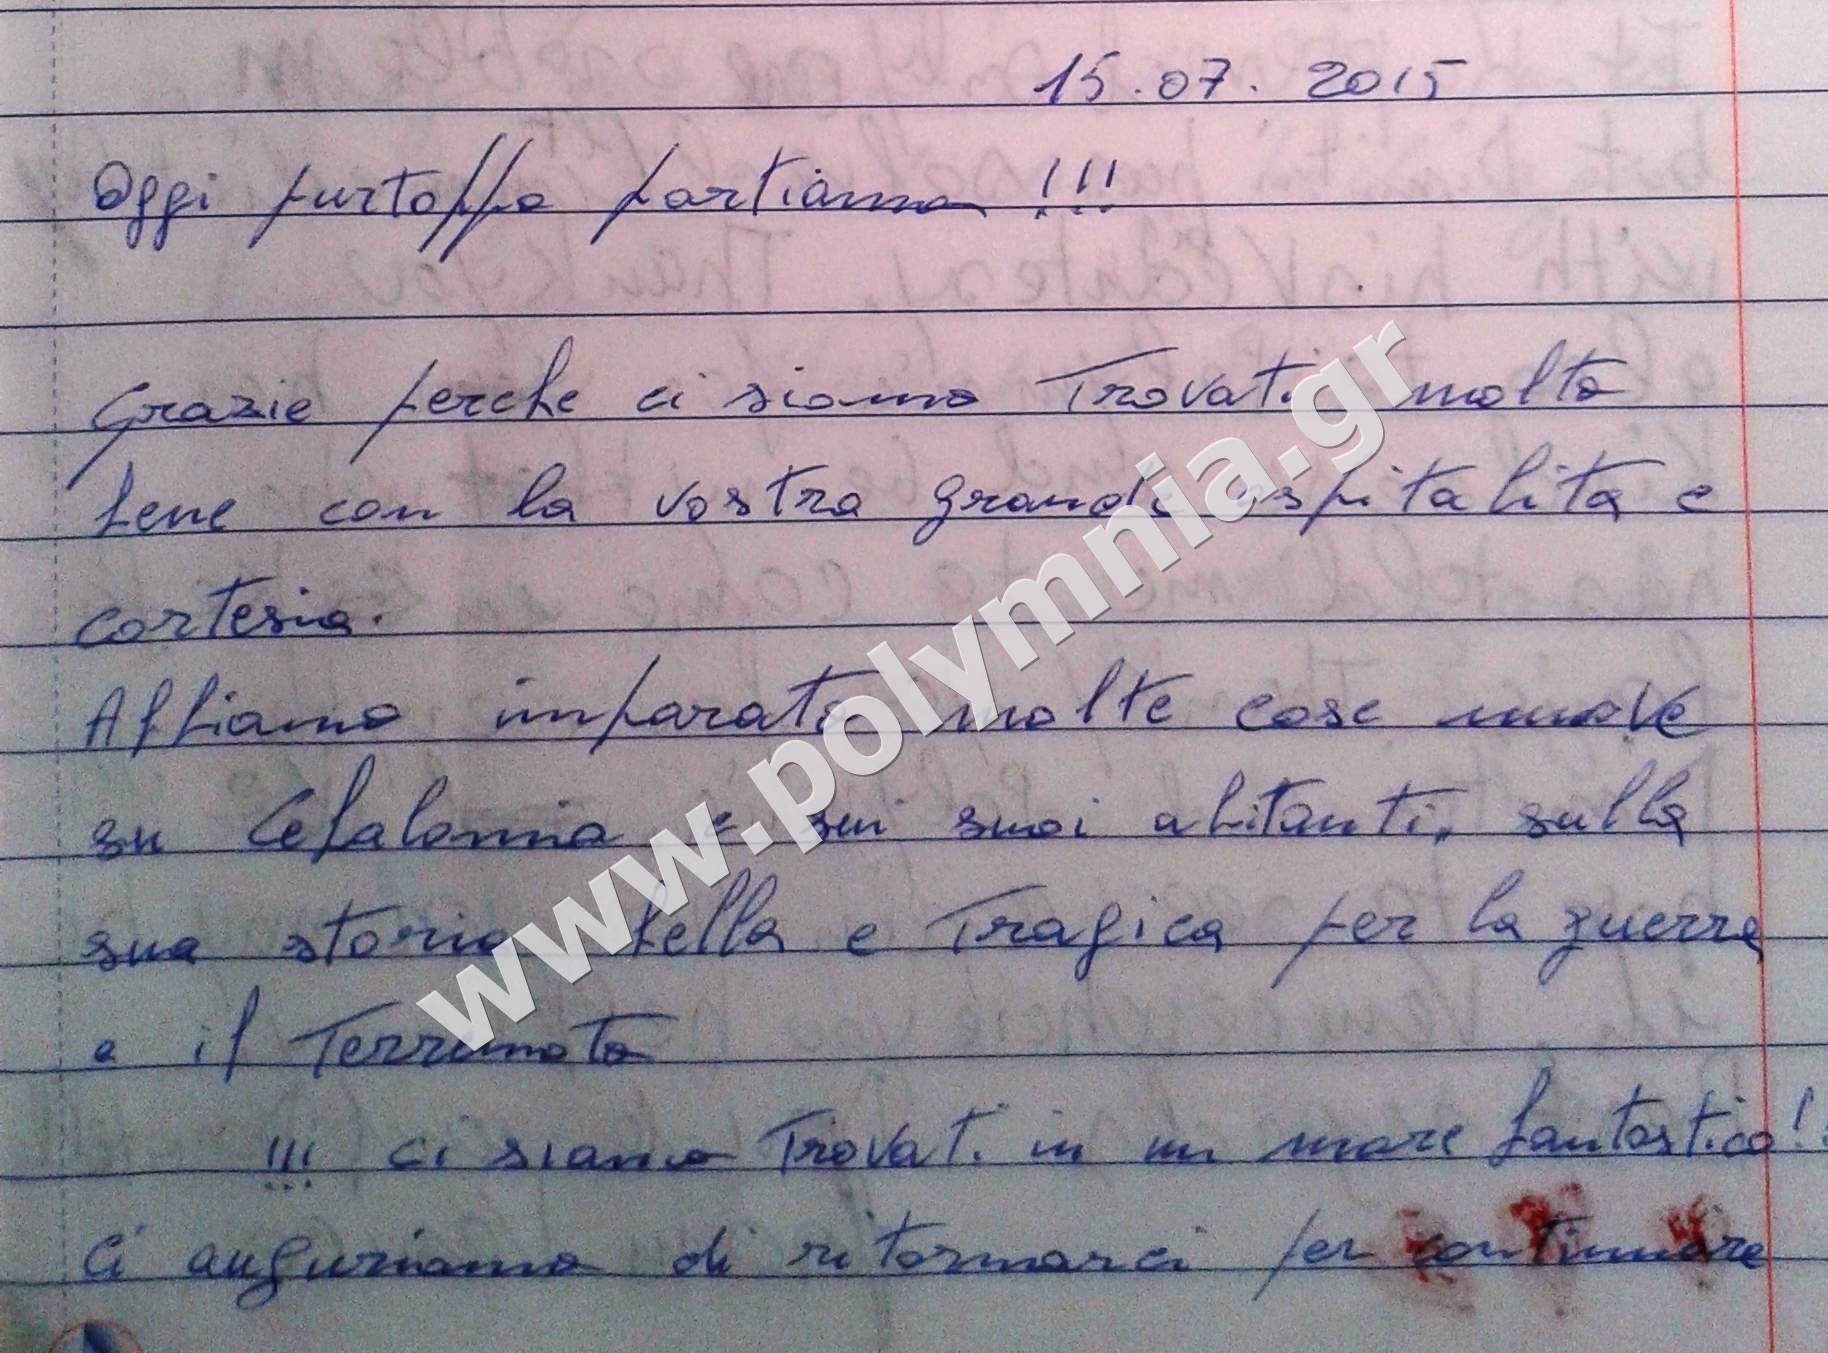 15.07.2015
Oggi purtoppo partiamo !!!
Grazie perche ci siamo Trovati molto
bene con la vostra grande ospitalita e
cortesia.
Abbiamo imparato molte cose nuove
su Cefalonia e sui suoi abitanti, sulla
sua storia bella e Tragica per la guerra
e il Terremoto
!!! ci siamo Trovati in un mare fantastico!!
Ci auguriamo di ritornarci per continuare
www.polymnia.gr